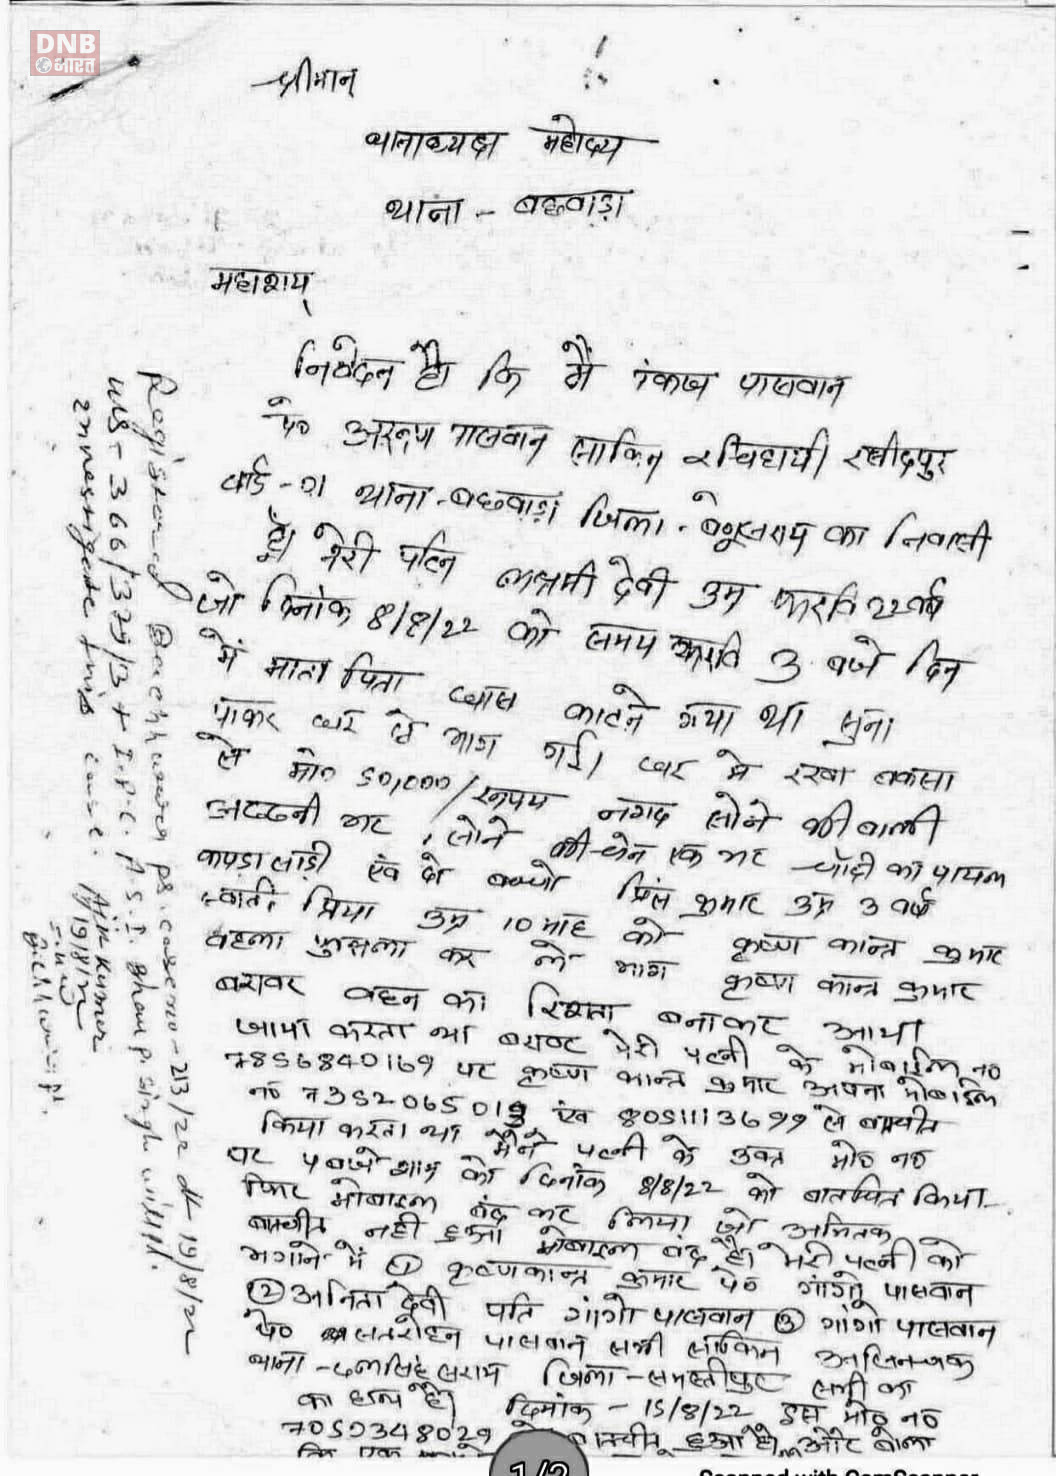 DNB
भारत
श्रीमान्
थानाध्यक्ष महोदय
थाना - बछवाड़ा
महाशय्
निवेदन है कि मैं पासवान
पे० अरूण पासवान साकिन रसीदपुर
वार्ड - थाना - बछवाड़ा जिला - बेगूसराय का निवासी
हूँ मेरी पत्नि देवी उम्र करीब 22 वर्ष
जो दिनांक 8/8/22 को समय करीब 3 बजे दिन
में माता पिता घास काटने गया था सुना
पाकर घर से भाग गई। घर मे रखा बकसा
से मो० 50,000/रूपय नगद सोने की बाली
भर, सोने की चेन एक भर चाँदी का पायल
कपड़ा साड़ी एंव दो बच्चो प्रिंस कुमार उम्र 3 वर्ष
स्वाती प्रिया उम्र 10 माह को कृष्ण कान्त कुमार
बहला फुसला कर ले भाग कृष्ण कान्त कुमार
बराबर बहन का रिश्ता बनाकर आया
जाया करता था बराबर मेरी पत्नी के मोबाईल न०
7856840169 पर कृष्ण कान्त कुमार अपना मोबाईल
न० एंव 8051113699 से बातचीत
किया करता था मैंने पत्नी के उक्त मो० न०
पर 4 बजे शाम को दिनांक 8/8/22 को बातचित किया
फिर मोबाइल बंद कर लिया जो अभितक
बातचीत नही हुआ मोबाइल बंद है। मेरी पत्नी को
भगाने में ① कृष्णकान्त कुमार पे० गांगो पासवान
② अनिता देवी पति गांगो पासवान ③ गांगो पासवान
पे० पासवान सभी साकिन
थाना - दलसिंह सराय जिला - समस्तीपुर सभी का
का हाथ है। दिनांक - 15/8/22 इस मो० न०
बातचीत हुआ है। और बोला
कि एक
1/2
Scanned with CamScanner
Registered Bachhwara ps. case no - 213/22 dt - 19/8/22
u/s - 366/379/34 I.P.C. A.S.I. Bhanu P. Singh will pl.
investigate this case.
Ajit Kumar
19/8/22